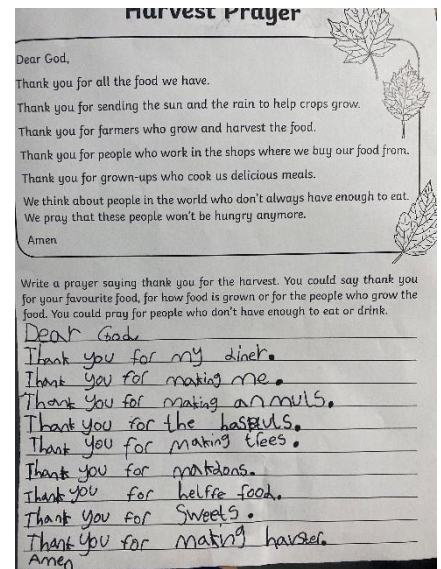 Harvest Prayer
Dear God,
Thank you for all the food we have.
Thank you for sending the sun and the rain to help crops grow.
Thank you for farmers who grow and harvest the food.
Thank you for people who work in the shops where we buy our food from.
Thank you for grown-ups who cook us delicious meals.
We think about people in the world who don't always have enough to eat.
We pray that these people won't be hungry anymore.
Amen
Write a prayer saying thank you for the harvest. You could say thank you
for your favourite food, for how food is grown or for the people who grow the
food. You could pray for people who don't have enough to eat or drink.
Dear God
Thank you for my diner.
Thank you for making me.
Thank you for making anmuls.
Thank you for the
Thank you for making trees.
Thank you for makdons.
Thank you for helffe food.
Thank you for Sweets.
Thank you for making harster.
Amen